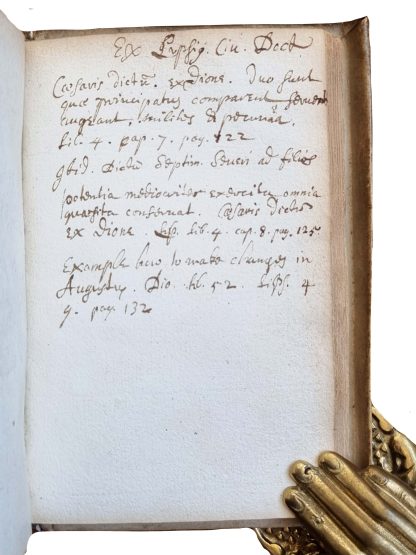 Ex Lypsij. Civ. Doct
Cæsaris dictũ. ex Dione. Duo sunt
quæ principatus comparent servent
augeant, milites & pecunia.
lib. 4. cap. 7. pag. 122
Ibid. Dictũ Septim. Severi ad filios
potentia mediocriter exercita omnia
quæsita conservat. Cæsaris dictũ
ex Dione Lips. lib. 4. cap. 8. pag. 125.
Example how to make changes in
Augustus. Dio. lib. 52. Lips. 4
9. pag. 132